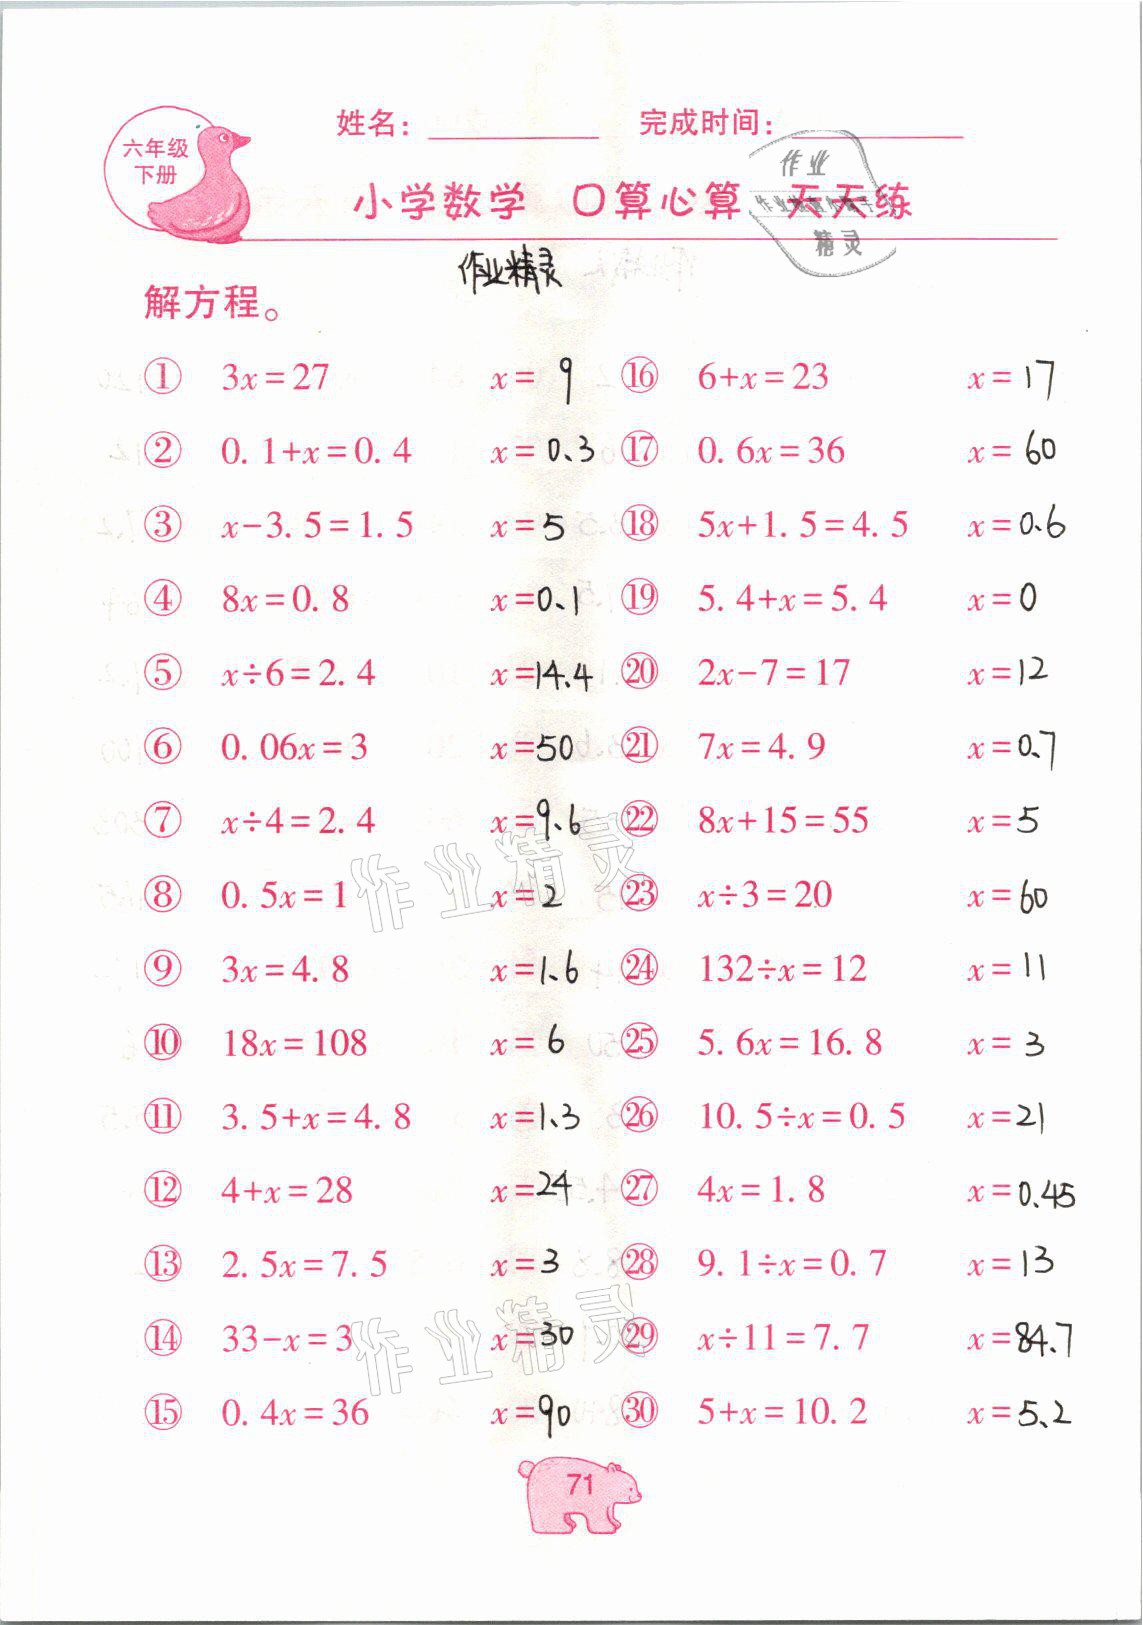 六年级
下册
姓名：
完成时间：
小学数学 口算心算 天天练
作业
精灵
作业精灵
解方程。
① 3x=27 x=9 ⑯ 6+x=23 x=17
② 0.1+x=0.4 x=0.3 ⑰ 0.6x=36 x=60
③ x-3.5=1.5 x=5 ⑱ 5x+1.5=4.5 x=0.6
④ 8x=0.8 x=0.1 ⑲ 5.4+x=5.4 x=0
⑤ x÷6=2.4 x=14.4 ⑳ 2x-7=17 x=12
⑥ 0.06x=3 x=50 ㉑ 7x=4.9 x=0.7
⑦ x÷4=2.4 x=9.6 ㉒ 8x+15=55 x=5
⑧ 0.5x=1 x=2 ㉓ x÷3=20 x=60
⑨ 3x=4.8 x=1.6 ㉔ 132÷x=12 x=11
⑩ 18x=108 x=6 ㉕ 5.6x=16.8 x=3
⑪ 3.5+x=4.8 x=1.3 ㉖ 10.5÷x=0.5 x=21
⑫ 4+x=28 x=24 ㉗ 4x=1.8 x=0.45
⑬ 2.5x=7.5 x=3 ㉘ 9.1÷x=0.7 x=13
⑭ 33-x=3 x=30 ㉙ x÷11=7.7 x=84.7
⑮ 0.4x=36 x=90 ㉚ 5+x=10.2 x=5.2
作业精灵
作业精灵
71